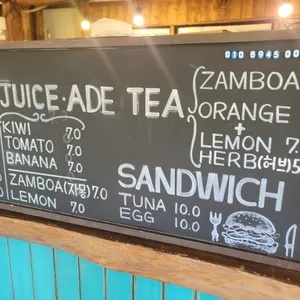 010 8945 00
JUICE·ADE TEA
KIWI 7.0
TOMATO 7.0
BANANA 7.0
ZAMBOA(자몽) 7.0
LEMON 7.0
ZAMBOA
ORANGE
+
LEMON 7.
HERB(허브)5
SANDWICH
TUNA 10.0
EGG 10.0